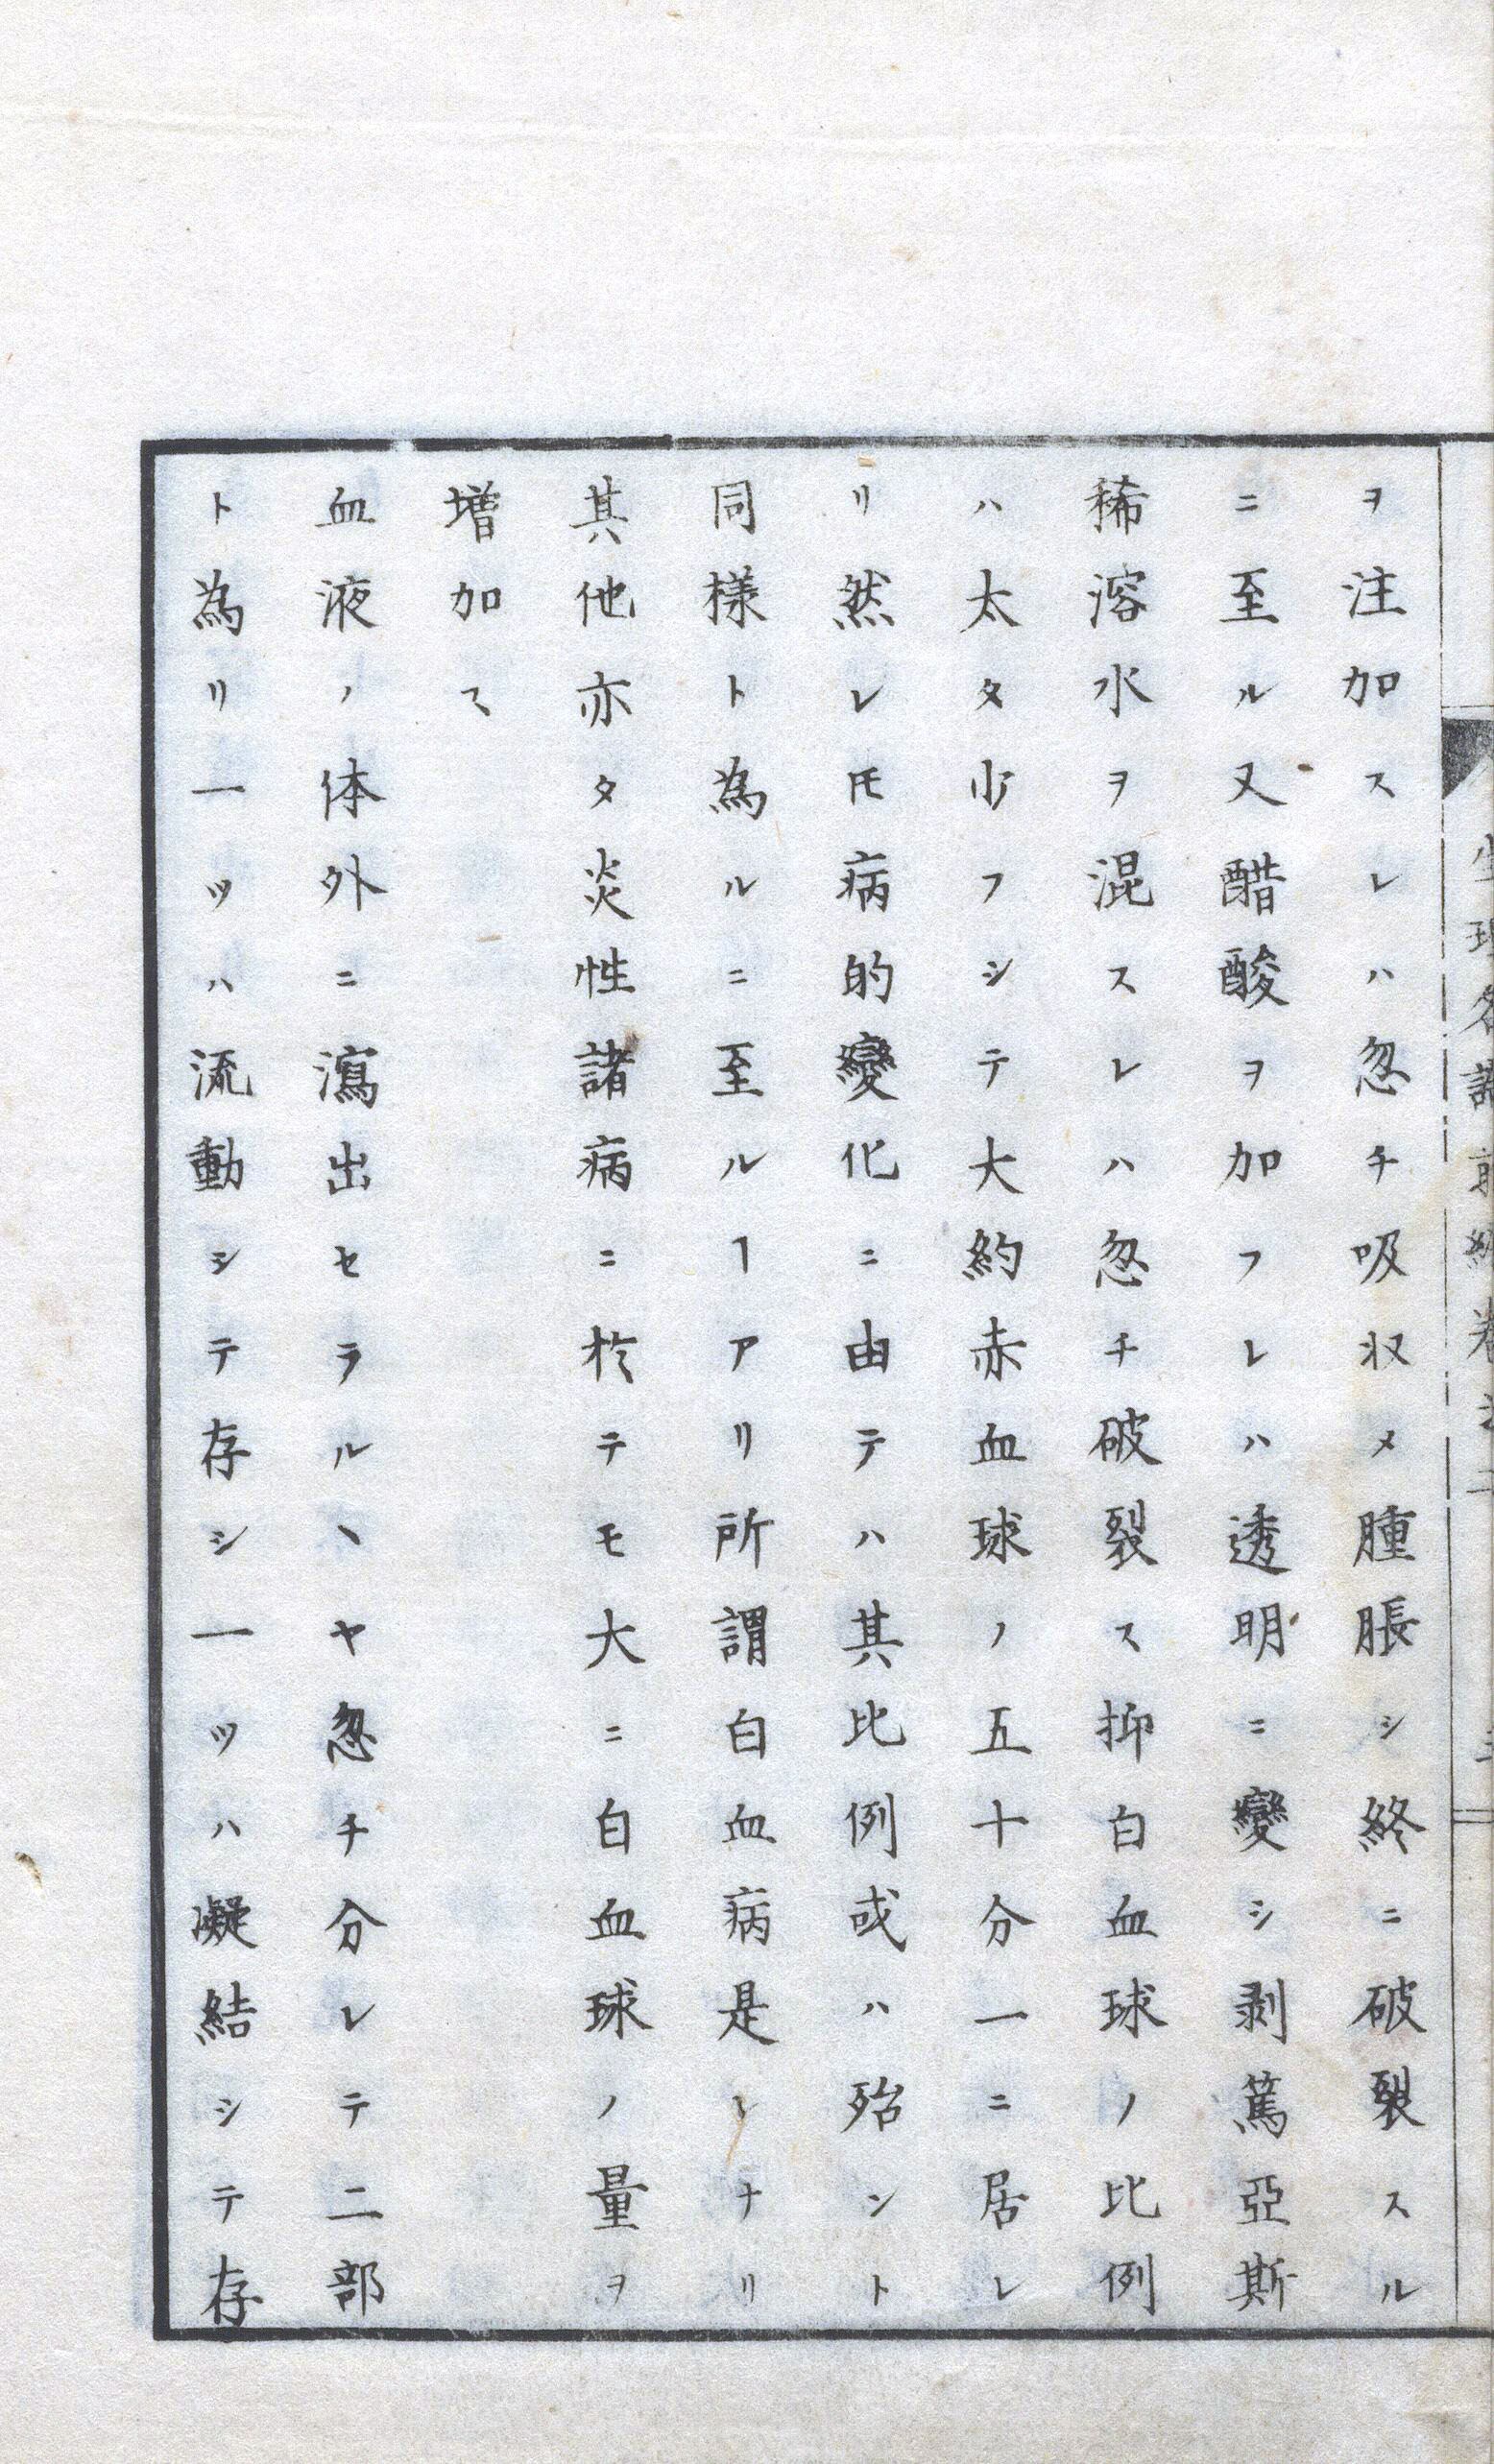 ヲ注加スレハ忽チ吸収メ腫脹シ終ニ破裂スル
ニ至ル又醋酸ヲ加フレハ透明ニ變シ剥篤亞斯
稀溶水ヲ混スレハ忽チ破裂ス抑白血球ノ比例
ハ太タ少フシテ大約赤血球ノ五十分一ニ居レ
リ然レ𪜈病的變化ニ由テハ其比例或ハ殆ント
同樣ト為ルニ至ルヿアリ所謂白血病是レナリ
其他亦タ炎性諸病ニ於テモ大ニ白血球ノ量ヲ
増加ス
血液ノ体外ニ瀉出セラルヽヤ忽チ分レテ二部
ト為リ一ツハ流動シテ存シ一ツハ凝結シテ存